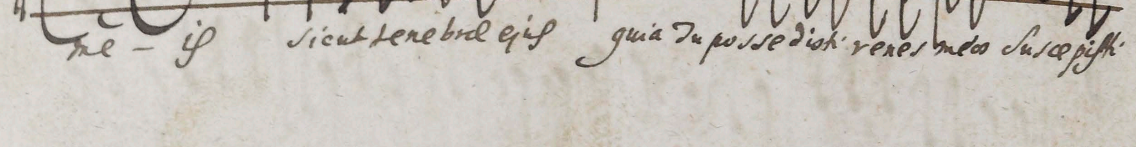 mē - is sicut tenebræ ejus quia Du possedisti renes meos Suscepisti